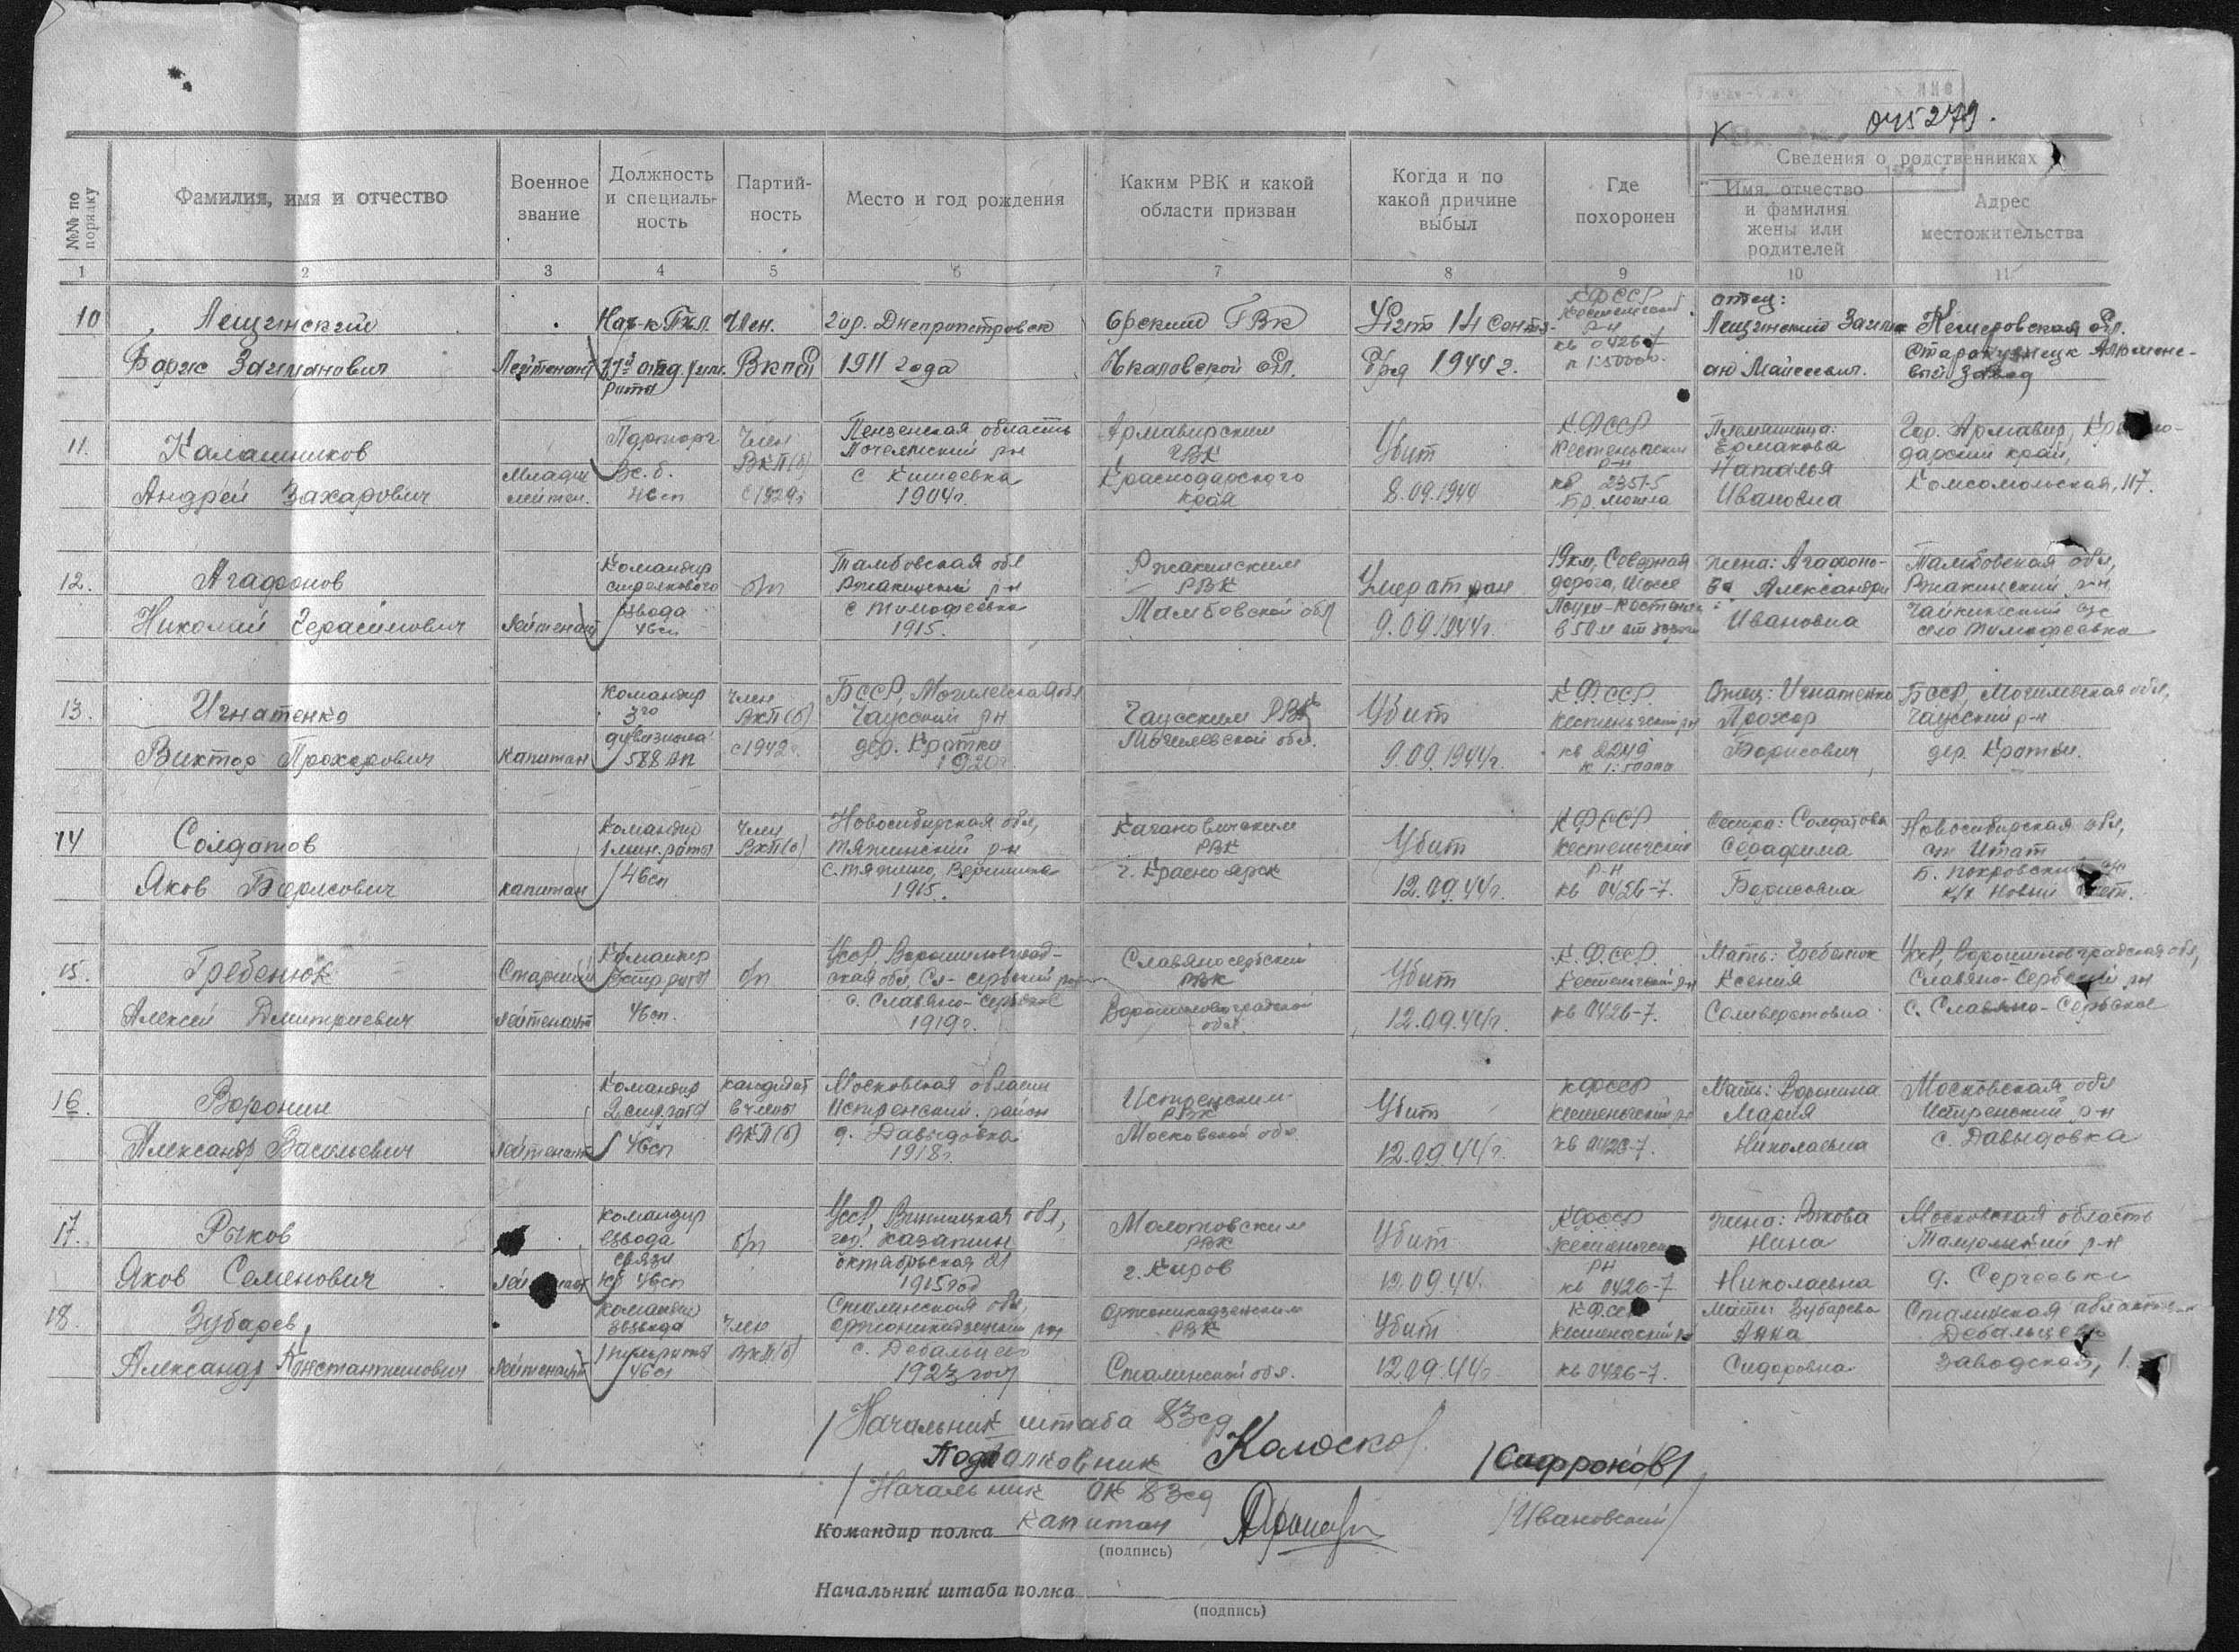 К 045279.
Сведения о родственниках
№№ по порядку
Фамилия, имя и отчество
Военное звание
Должность и специальность
Партийность
Место и год рождения
Каким РВК и какой области призван
Когда и по какой причине выбыл
Где похоронен
Имя, отчество и фамилия жены или родителей
Адрес местожительства
1 2 3 4 5 6 7 8 9 10 11
10 Лещинский Борис Залманович
Лейтенант
Нач-к ПТ.
рота
Член. ВКПб
гор. Днепропетровск 1911 года
Орский ГВК Чкаловской обл.
14 Сент. 1944 г.
КФССР Кестеньгский р-н кв 0426
отец: Лещинский Майсеевич.
Кемеровская обл. Старокузнецк Алюминевый завод
11. Калашников Андрей Захарович
Младш лейтен.
Парторг 46 сп
Член ВКП(б) с 1929г
Пензенская область Пачелмский р-н с Кишеевка 1904г.
Армавирским ГВК Краснодарского края
Убит 8.09.1944
КФССР Кестеньгский р-н кв 2351-5 Бр. могила
Племянница: Ермакова Наталья Ивановна
Гор. Армавир, Краснодарский край, Комсомольская, 117.
12. Агафонов Николай Герасимович
Лейтенант
Командир стрелкового взвода 46сп
б/п
Тамбовская обл Ржакинский р-н с Тимофеевка 1915.
Ржакинским РВК Тамбовской обл
Умер от ран 9.09.1944г.
19км, Северная дорога, Шоссе Лоухи-Кестеньга в 50м от дороги
жена: Агафонова Александра Ивановна
Тамбовская обл, Ржакинский р-н Чайкинский с/с село Тимофеевка
13. Игнатенко Виктор Прохорович
Капитан
Командир 3го дивизиона 588 АП
Член ВКП(б) с 1942г
БССР, Могилевская обл Чаусский р-н дер. Кратки 1920г
Чаусским РВК Могилевской обл.
Убит 9.09.1944г.
К.Ф.ССР. Кестеньгский р-н кв 2249 К 1:50000
Отец: Игнатенко Прохор Борисович
БССР, Могилевская обл, Чаусский р-н дер. Кратки.
14 Солдатов Яков Борисович
капитан
Командир 1 мин. роты 46сп
Член ВКП(б)
Новосибирская обл, Тяжинский р-н с. Тяжино, Вершинка 1915.
Кагановичским РВК г. Красноярск
Убит 12.09.44г.
КФССР Кестеньгский р-н кв 0456-7.
Сестра: Солдатова Серафима Борисовна
Новосибирская обл, ст Итат Б. Покровский с/с к/х Новый
15. Гребенюк Алексей Дмитриевич
Старший лейтенант
Командир стр роты 46сп.
б/п
УССР, Ворошиловградская обл, Сл-сербский район с. Славяно-Сербское 1919г.
Славяносербский РВК Ворошиловоградской обл.
Убит 12.09.44г.
К.Ф.ССР. Кестеньгский р-н кв 0426-7.
Мать: Гребенюк Ксения Селиверстовна
УССР, Ворошиловградская обл, Славяно-Сербский р-н с. Славяно-Сербское
16. Воронин Александр Васильевич
Лейтенант
Командир 2 стр. роты 46сп
кандидат в члены ВКП(б)
Московская область Истренский район д. Давыдовка 1918г.
Истренским РВК Московской обл.
Убит 12.09.44г.
КФССР Кестеньгский р-н кв 0426-7.
Мать: Воронина Мария Николаевна
Московская обл Истренский р-н с. Давыдовка
17. Рыков Яков Семенович
Лейтенант
командир взвода связи 46сп
б/п
УССР, Винницкая обл, гор. Казатин Октябрьская 21 1915год
Молотовским РВК г. Киров
Убит 12.09.44.
КФССР Кестеньгский р-н кв 0426-7
жена: Рыкова Нина Николаевна
Московская область р-н д. Сергеевка
18. Зубарев, Александр Константинович
Лейтенант
командир взвода 46сп
Член ВКП(б)
Сталинская обл, Орджоникидзевский р-н с. Дебальцево 1923 год
Орджоникидзевским РВК Сталинской обл.
Убит 12.09.44г.
КФССР Кестеньгский р-н кв 0426-7.
Мать: Зубарева Анна Сидоровна
Сталинская область Дебальцево Заводская, 1.
Начальник штаба 83сд
Подполковник /Сафронов/
/Начальник ОК 83сд
Командир полка капитан /Ивановский/
(подпись)
Начальник штаба полка
(подпись)